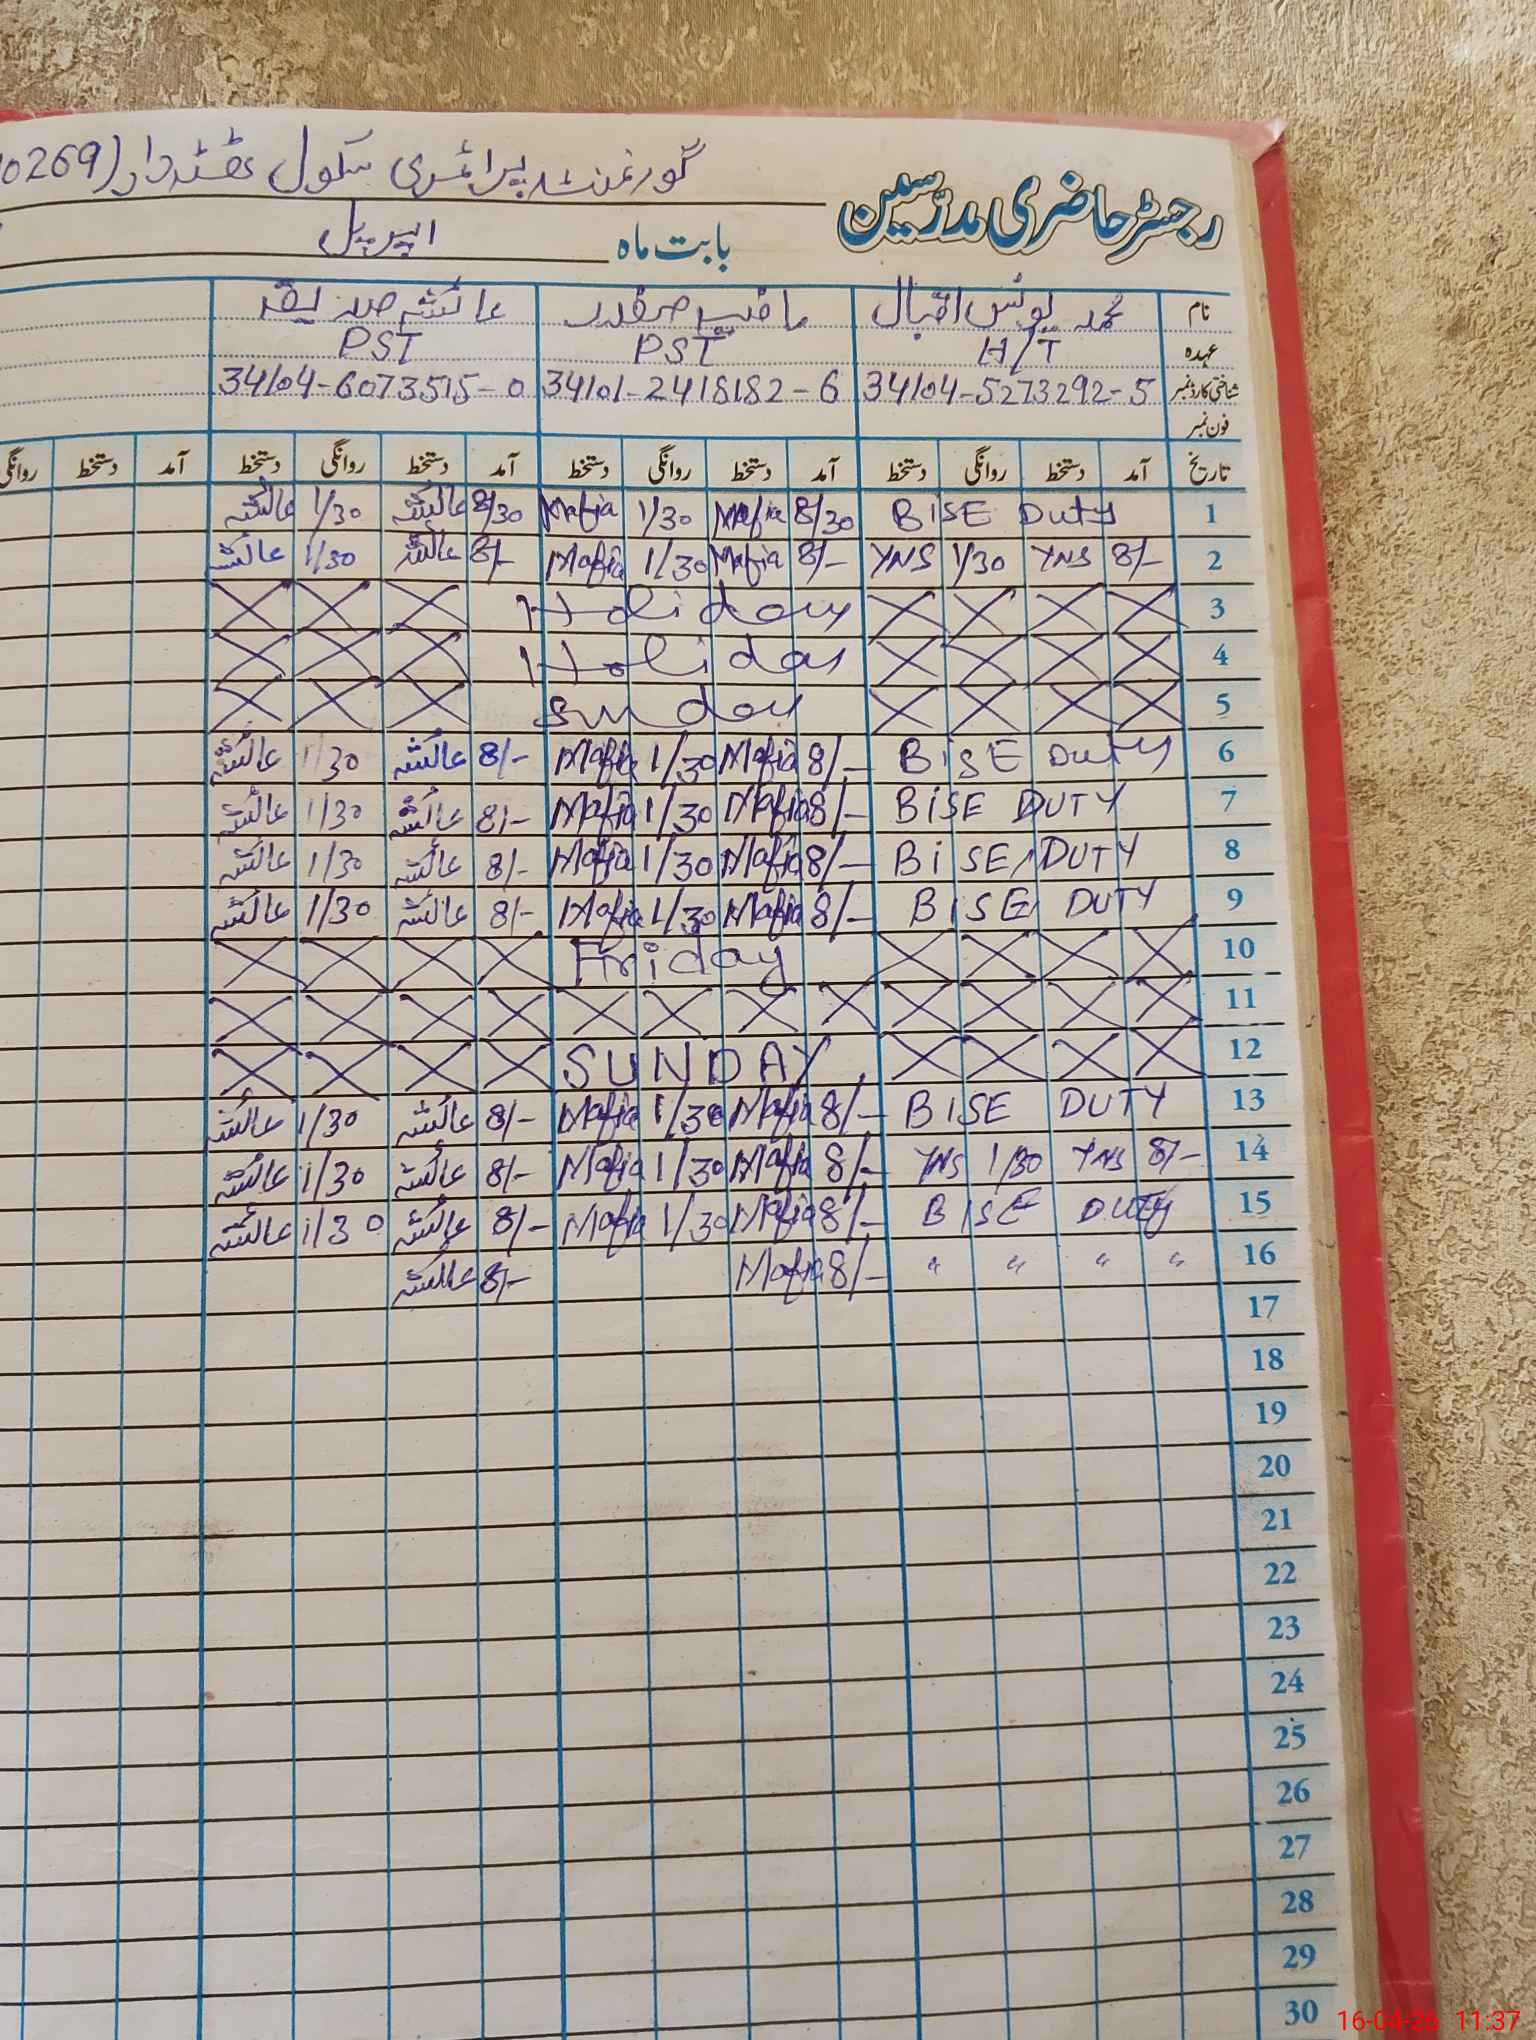 گورنمنٹ پرائمری سکول ٹھٹہ داد (0269
رجسٹر حاضری مدرسین
بابت ماہ اپریل
نام محمد یونس اقبال صفدر عائشہ صدیقہ
عہدہ H/T PST PST
شناختی کارڈ نمبر 34104-5273292-5 34101-2418182-6 34104-6073515-0
فون نمبر
تاریخ آمد دستخط روانگی دستخط آمد دستخط روانگی دستخط آمد دستخط روانگی دستخط آمد دستخط روانگی
1 BISE Duty 8/30 Mafia 1/30 Mafia 8/30 عائشہ 1/30 عائشہ
2 8/- YNS 1/30 YNS 8/- Mafia 1/30 Mafia 8/- عائشہ 1/30 عائشہ
3 Holiday
4 Holiday
5 Sunday
6 BISE Duty 8/- Mafia 1/30 Mafia 8/- عائشہ 1/30 عائشہ
7 BISE DUTY 8/- Mafia 1/30 Mafia 8/- عائشہ 1/30 عائشہ
8 BISE DUTY 8/- Mafia 1/30 Mafia 8/- عائشہ 1/30 عائشہ
9 BISE DUTY 8/- Mafia 1/30 Mafia 8/- عائشہ 1/30 عائشہ
10 Friday
11
12 SUNDAY
13 BISE DUTY 8/- Mafia 1/30 Mafia 8/- عائشہ 1/30 عائشہ
14 8/- YNS 1/30 YNS 8/- Mafia 1/30 Mafia 8/- عائشہ 1/30 عائشہ
15 BISE DUTY 8/- Mafia 1/30 Mafia 8/- عائشہ 1/30 عائشہ
16 " " " " 8/- Mafia 8/- عائشہ
17
18
19
20
21
22
23
24
25
26
27
28
29
30
16-04-26 11:37